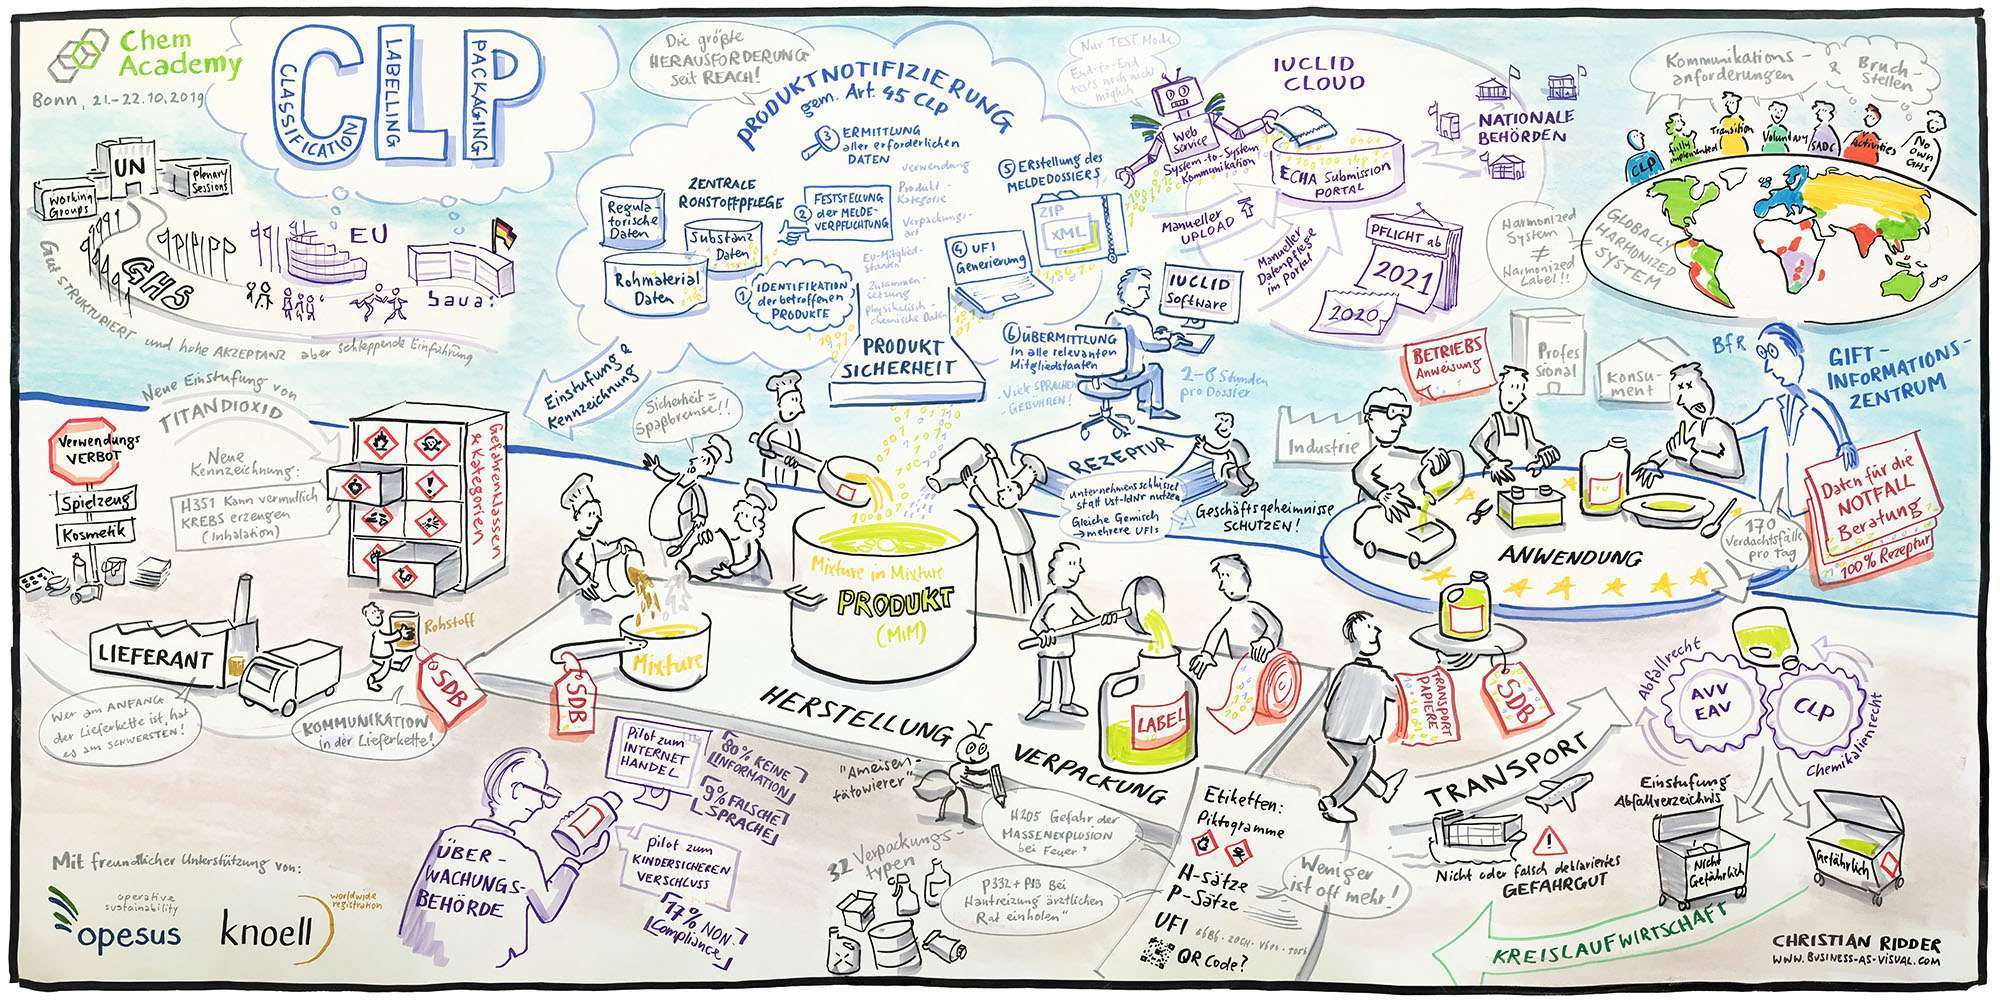 Chem
Academy
Bonn, 21.-22.10.2019
CLP
CLASSIFICATION
LABELLING
PACKAGING
UN
Working
Groups
Plenary
Sessions
GHS
EU
baua:
Gut STRUKTURIERT und hohe AKZEPTANZ aber schleppende Einführung
Die größte
HERAUSFORDERUNG
seit REACH!
PRODUKTNOTIFIZIERUNG
gem. Art. 45 CLP
3 ERMITTLUNG
aller erforderlichen
DATEN
Verwendung
Produkt-
Kategorie
Verpackungs-
art
EU-Mitglied-
staaten
Zusammen-
setzung
physikalisch-
chemische Daten
Regula-
torische
Daten
ZENTRALE
ROHSTOFFPFLEGE
Substanz
Daten
Rohmaterial
Daten
2 FESTSTELLUNG
der MELDE-
VERPFLICHTUNG
1 IDENTIFIKATION
der betroffenen
PRODUKTE
4 UFI
Generierung
5 ERStellung des
MELDEDOSSIERS
ZIP
XML
6 ÜBERMITTLUNG
in alle relevanten
Mitgliedstaaten
. Viele SPRACHEN
. GEBÜHREN!
PRODUKT
SICHERHEIT
Einstufung &
Kennzeichnung
Nur TEST Mode
End-to-End
tests noch nicht
möglich
Web
Service
System-to-System
Kommunikation
IUCLID
CLOUD
ECHA Submission
PORTAL
NATIONALE
BEHÖRDEN
Manueller
UPLOAD
Manueller
Datenpflege
im Portal
PFLICHT ab
2021
2020
IUCLID
Software
2-6 Stunden
pro Dossier
REZEPTUR
Unternehmensschlüssel
statt Ust-IdNr nutzen
Gleiche Gemisch
→ mehrere UFIs
Geschäftsgeheimnisse
SCHÜTZEN!
Kommunikations-
anforderungen
& Bruch-
Stellen
CLP
fully
implemented
Transition
Voluntary
SADC
Activities
No
own
GHS
GLOBALLY
HARMONIZED
SYSTEM
Harmonized
System
≠
Harmonized
Label!!
Verwendungs
VERBOT
Spielzeug
Kosmetik
Neue Einstufung von
TITANDIOXID
Neue
Kennzeichnung:
H351 Kann vermutlich
KREBS erzeugen
(Inhalation)
Gefahrenklassen
& Kategorien
Sicherheit =
Spaßbremse!!
LIEFERANT
Wer am ANFANG
der Lieferkette ist, hat
es am SCHWERSTEN!
Rohstoff
SDB
KOMMUNIKATION
in der Lieferkette!
SDB
Mixture
Mixture in Mixture
PRODUKT
(MiM)
HERSTELLUNG
VERPACKUNG
LABEL
BETRIEBS
Anweisung
Profes
sional
Konsu-
ment
Industrie
ANWENDUNG
BfR
GIFT-
INFORMATIONS-
ZENTRUM
Daten für die
NOTFALL
Beratung
100% Rezeptur
170
Verdachtsfälle
pro Tag
TRANSPORT
PAPIERE
SDB
TRANSPORT
Nicht oder falsch deklariertes
GEFAHRGUT
Abfallrecht
AVV
EAV
CLP
Chemikalienrecht
Einstufung
Abfallverzeichnis
Nicht
Gefährlich
Gefährlich
KREISLAUFWIRTSCHAFT
ÜBER-
WACHUNGS-
BEHÖRDE
Pilot zum
INTERNET
HANDEL
80% KEINE
INFORMATION
9% FALSCHE
SPRACHE
pilot zum
KINDERSICHEREN
VERSCHLUSS
77% NON
Compliance
"Ameisen-
tätowierer"
32 Verpackungs-
typen
H205 Gefahr der
MASSENEXPLOSION
bei Feuer"
Etiketten:
Piktogramme
H-Sätze
P-Sätze
UFI
QR Code?
Weniger
ist oft mehr!
Mit freundlicher Unterstützung von:
operative
sustainability
opesus
knoell
worldwide
registration
CHRISTIAN RIDDER
WWW.BUSINESS-AS-VISUAL.COM